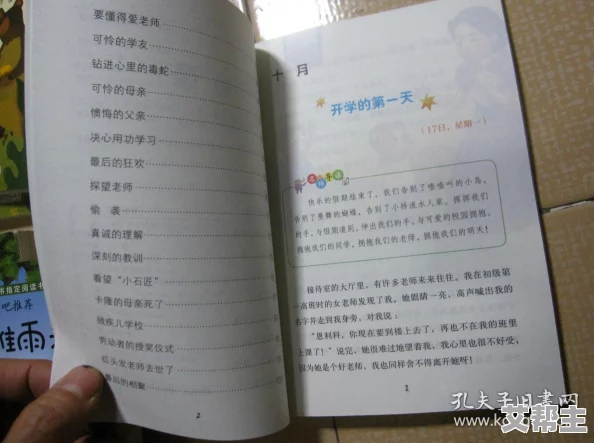 要懂得爱老师
可怜的学友
钻进心里的毒蛇
可怜的母亲
懊悔的父亲
决心用功学习
最后的狂欢
探望老师
偷 袭
真诚的理解
深刻的教训
看望“小石匠”
卡隆的母亲死了
残疾儿学校
劳动者的授奖仪式
红头发老师去世了
最后的相聚
2
十 月
开学的第一天
（17日，星期一）
快乐的假期结束了，我们告别了喳喳叫的小鸟，
告别了曼舞的蝴蝶，告别了小桥流水人家。挥挥我们
的手，与假期道别，伸出我们的手，与可爱的校园拥抱。
拥抱我们的同学，拥抱我们的老师，拥抱我们的明天！
接待室的大厅里，有许多老师来来往往。我在初级第
一高班时的女老师发现了我，她眼睛一亮，高声喊出我的
名字并走到我身旁，对我说：
“恩利科，你现在要到楼上去了，再也不在我的班里
上课了！”说完，她很难过地望着我。我心里也很不好受，
因为她是个好老师，我也同样舍不得离开她呀！
1
书指定阅读书
吧推荐
雨
孔夫子旧书网
艾帮主